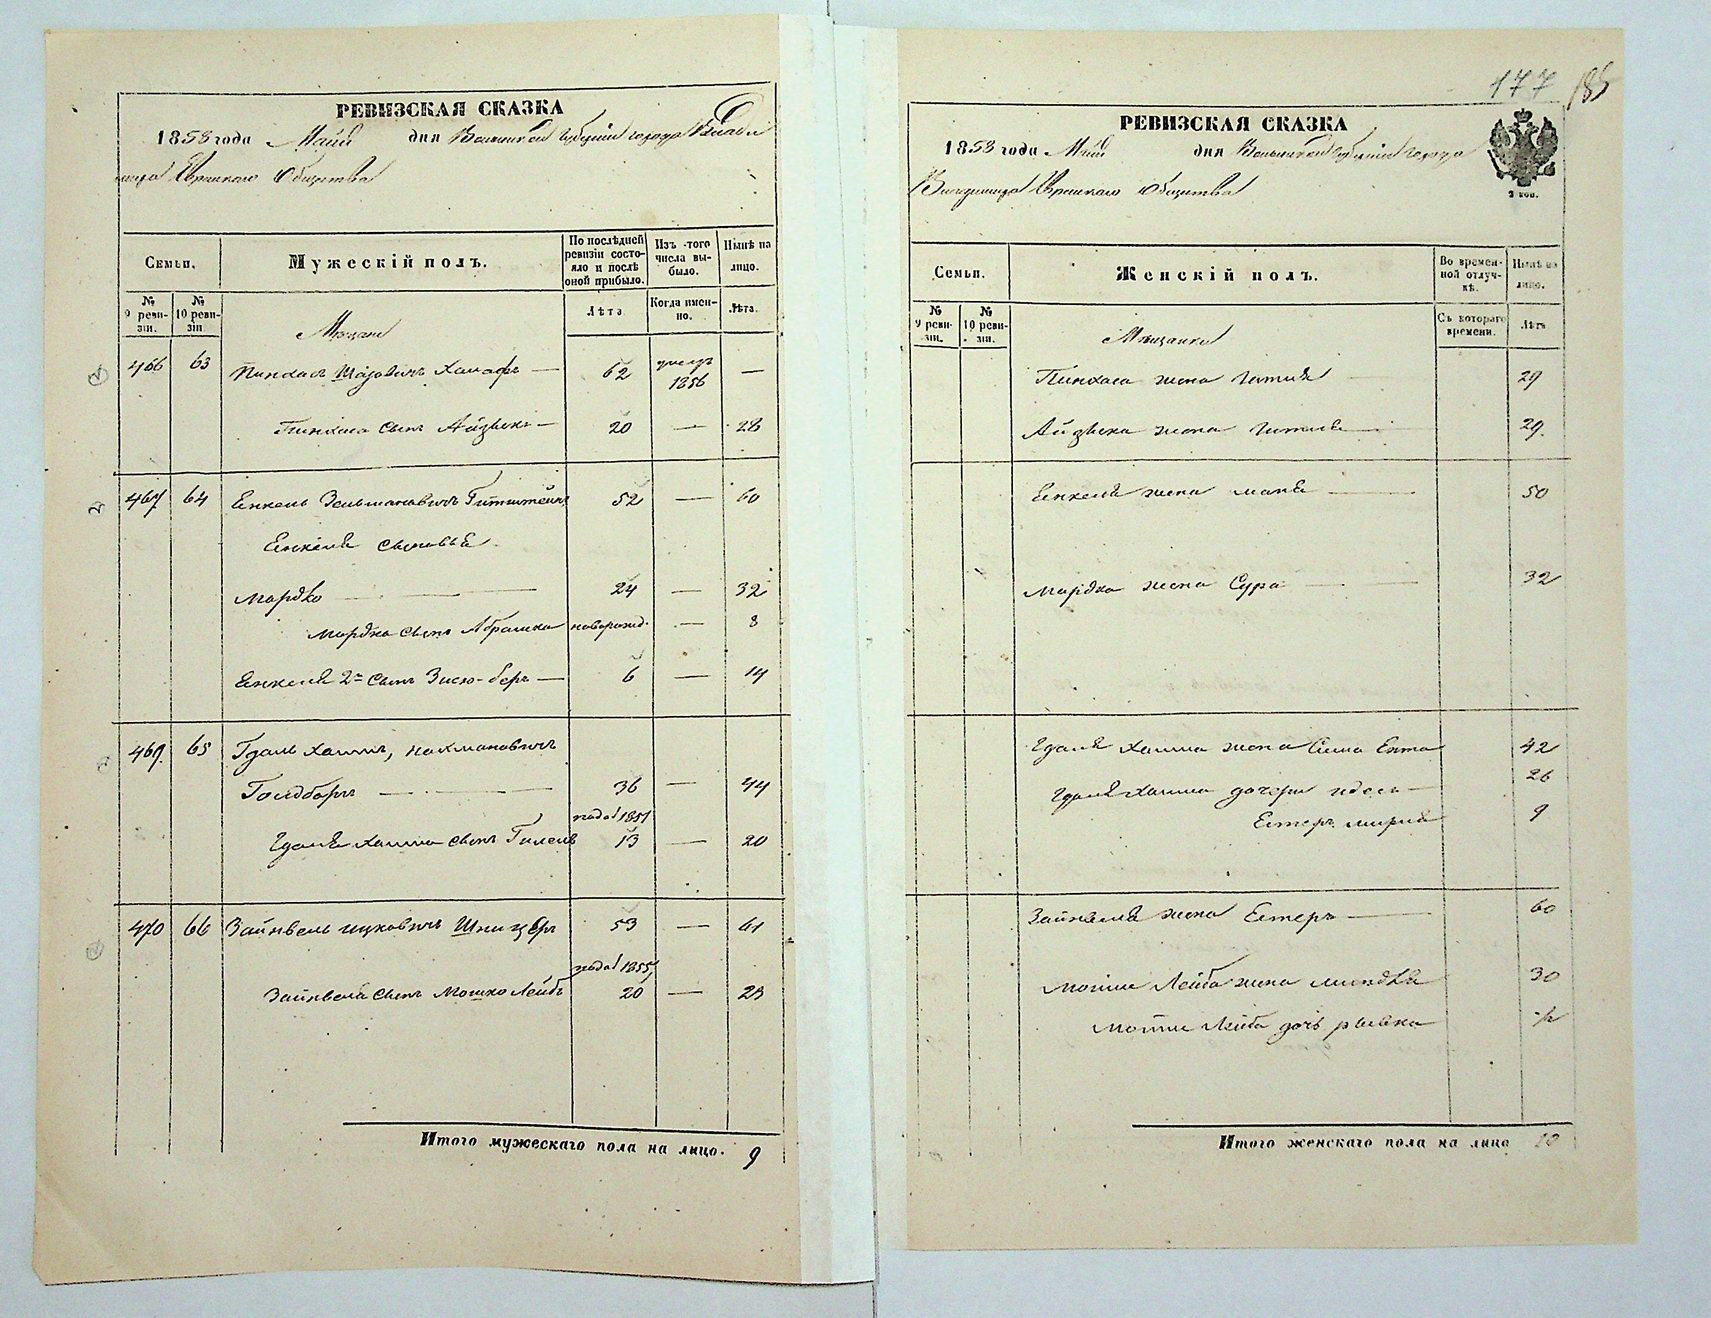 РЕВИЗСКАЯ СКАЗКА
1858 года Маія дня Волынской губерніи города Влади
мира Еврейскаго Общества
Семьи.
Мужескій полъ.
По послѣдней ревизіи состояло и послѣ оной прибыло.
Изъ того числа выбыло.
Нынѣ на лицо.
№ 9 ревизіи.
№ 10 ревизіи
Лѣта
Когда именно.
Лѣта.
Мѣщане
466 63 Пинхасъ Шаевичъ — 62 умеръ 1856 —
Пинхаса сынъ Айзыкъ — 20 — 28
467 64 Енкель Зельмановичъ Гитштейнъ 52 — 60
Енкеля сыновья
Мордко — 24 — 32
Мордка сынъ Абрамко новорожд. — 8
Енкеля 2й сынъ Зисю-беръ — 6 — 14
469. 65 Гдаль Хаимъ, Нахмановичъ
Голдборть — 36 — 44
1851
Гдаля Хаима сынъ 13 — 20
470 66 Зайнвель Ицковичъ Шницеръ 53 — 61
1855
Зайнвеля сынъ Мошко Лейбъ 20 — 23
Итого мужескаго пола на лицо. 9
177 185
РЕВИЗСКАЯ СКАЗКА
1858 года Маія дня Волынской губерніи города
Владимира Еврейскаго Общества
2 коп.
Семьи.
Женскій полъ.
Во временной отлучкѣ.
Нынѣ на лицо.
№ 9 ревизіи.
№ 10 ревизіи.
Съ котораго времени.
Лѣта
Мѣщанки
Пинхаса жена Гитля 29
Айзыка жена 29.
Енкеля жена Маня — 50
Мордка жена Сура — 32
Гдаля Хаима жена Сима Ента 42
Гдаля Хаима дочери Идесъ — 26
Естеръ Мирля 9
Зайнвеля жена Естеръ — 60
Мошки Лейба жена Миндля 30
Мошки Лейба дочь Рывка ½
Итого женскаго пола на лицо 10